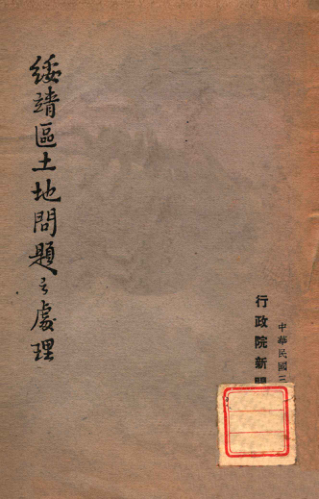 中華民國三
行政院新
綏靖區土地問題之處理